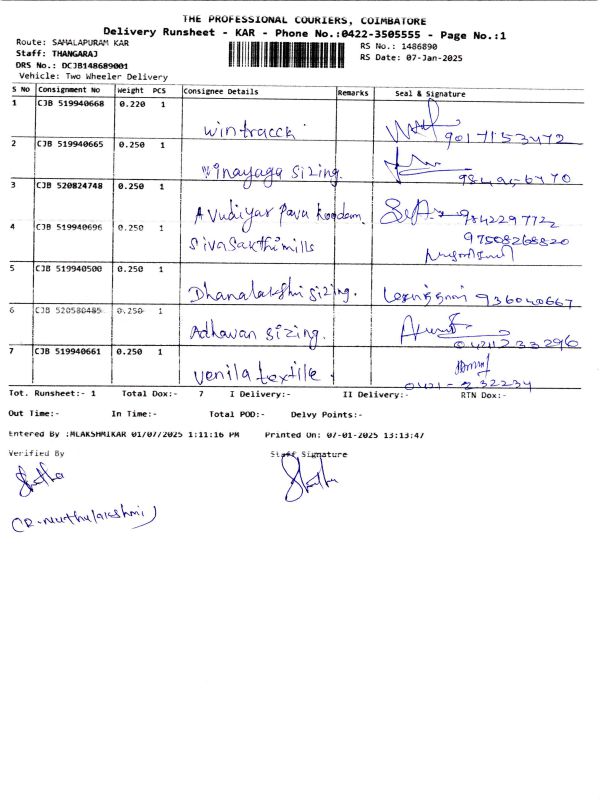 THE PROFESSIONAL COURIERS, COIMBATORE
Delivery Runsheet - KAR - Phone No.:0422-3505555 - Page No.:1
Route: SAMALAPURAM KAR
RS No.: 1486890
Staff: THANGARAJ
RS Date: 07-Jan-2025
DRS No.: DCJB148689001
Vehicle: Two Wheeler Delivery
S No Consignment No Weight PCS Consignee Details Remarks Seal & Signature
1 CJB 519940668 0.220 1
wintracck 9017153472
2 CJB 519940665 0.250 1
Winayaga sizing.
3 CJB 520824748 0.250 1
A Vudiyar Pava koodam. 9842297722
4 CJB 519940696 0.250 1 97508268820
Sivasakthimills
5 CJB 519940500 0.250 1
Dhanalakshi sizing. 936040667
6 CJB 520580485 0.250 1
Adhavan sizing. 04212332296
7 CJB 519940661 0.250 1
venila textile. 0421-232234
Tot. Runsheet:- 1 Total Dox:- 7 I Delivery:- II Delivery:- RTN Dox:-
Out Time:- In Time:- Total POD:- Delvy Points:-
Entered By :MLAKSHMIKAR 01/07/2025 1:11:16 PM Printed On: 07-01-2025 13:13:47
Verified By Staff Signature
(R. Muthulakshmi)